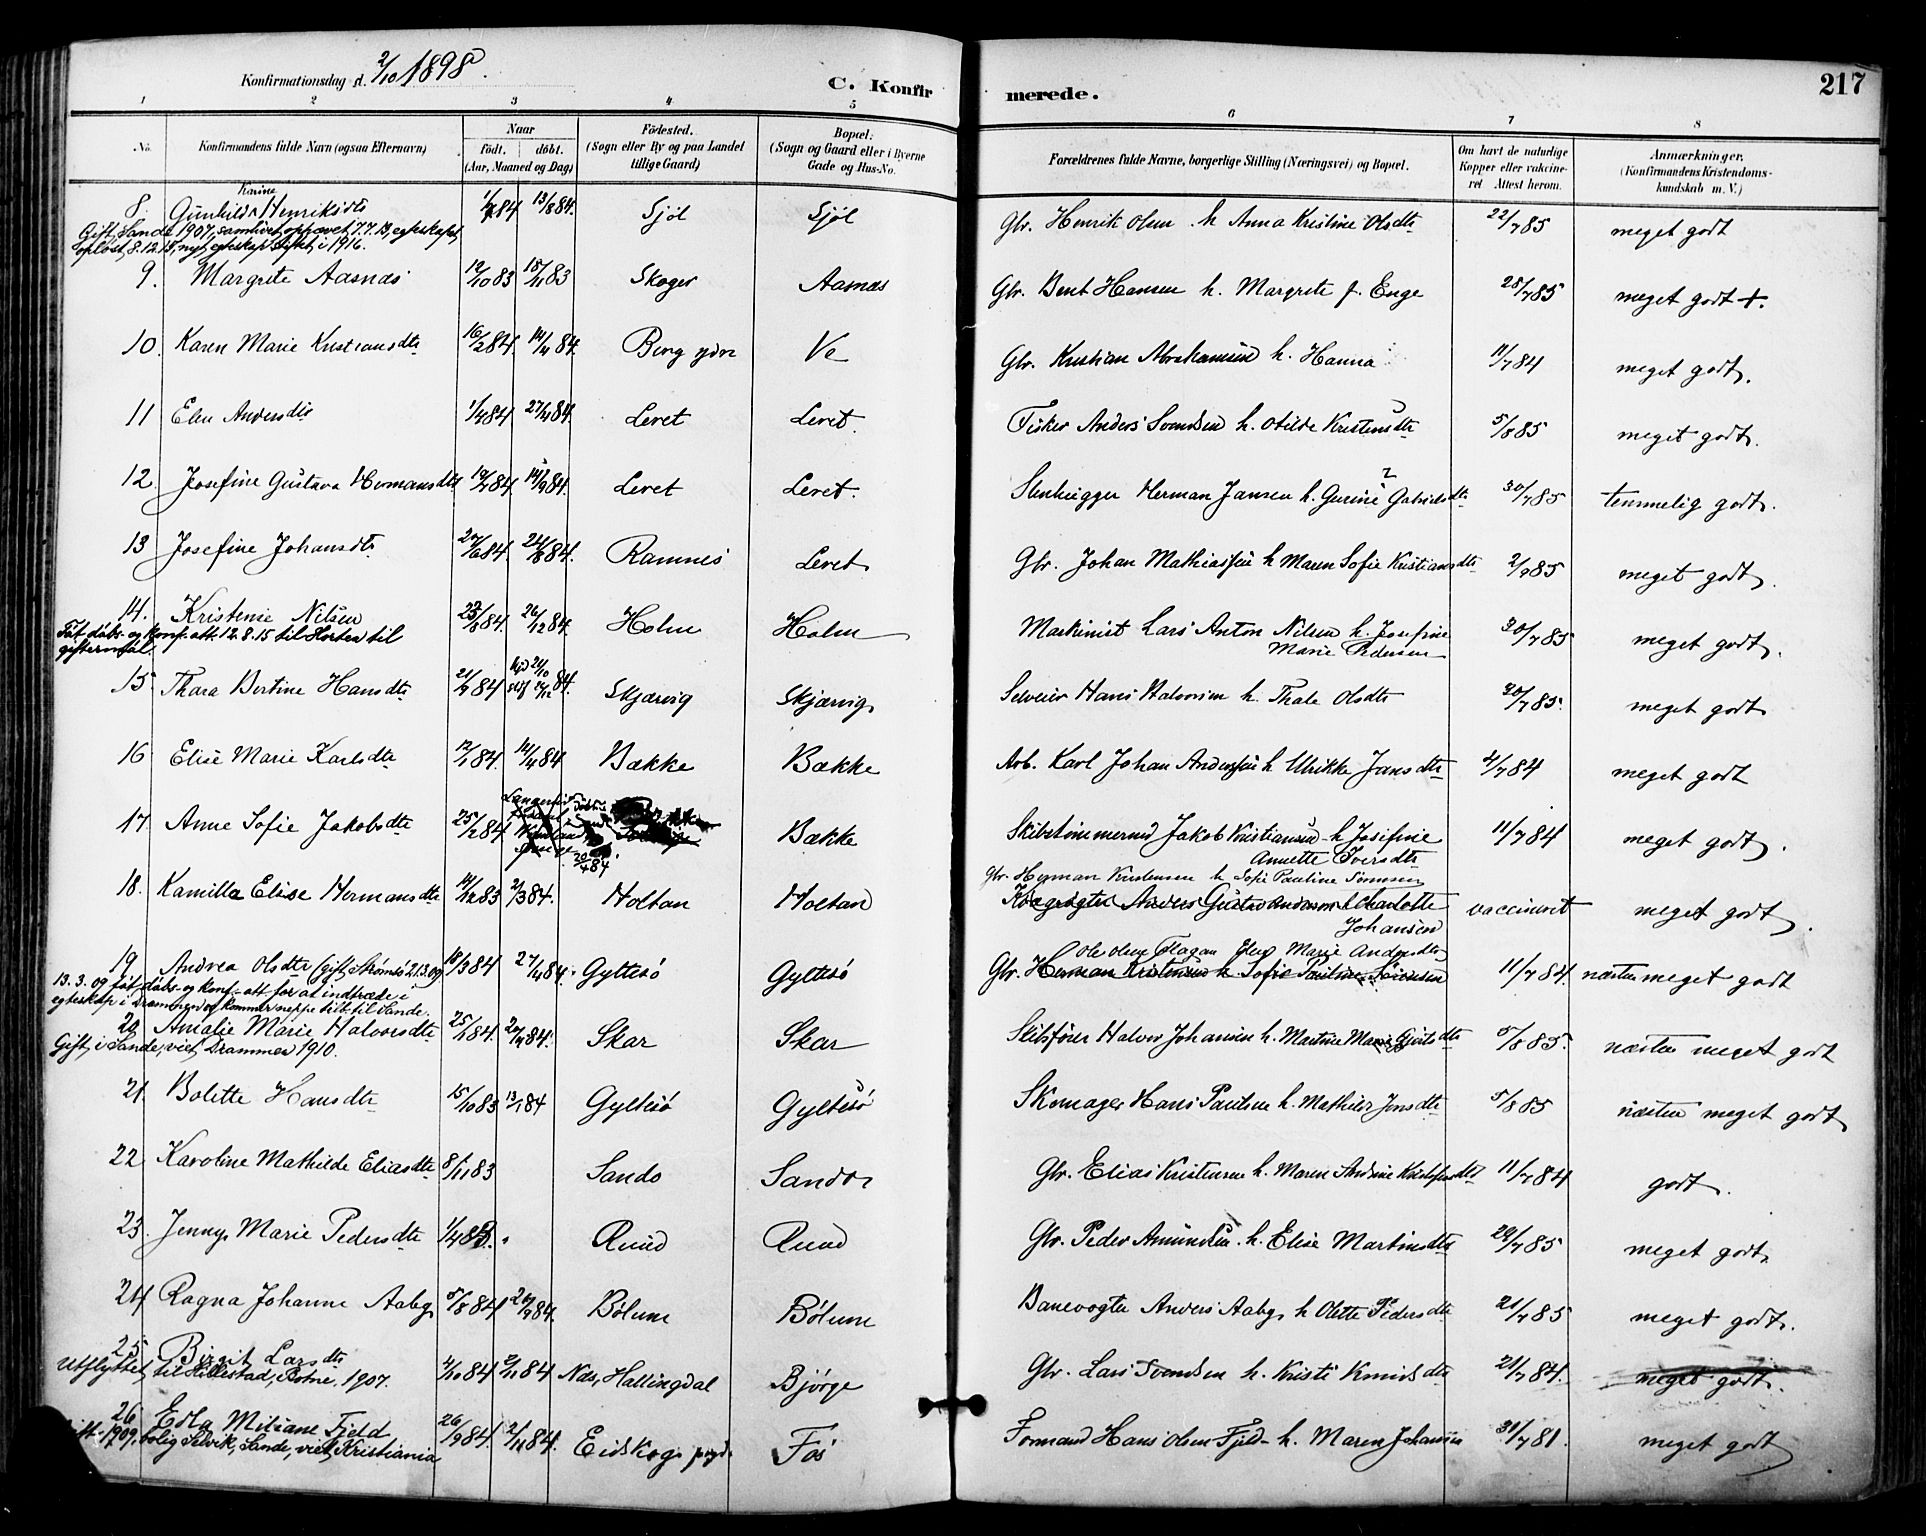 Konfirmationsdag d. 2/10 1898.
C. Konfirmerede.
217
1 2 3 4 5 6 7 8
No. Konfirmandens fulde Navn (ogsaa Efternavn) Naar födt. döbt. (Aar, Maaned og Dag) Födested. (Sogn eller By og paa Landet tillige Gaard) Bopæl: (Sogn og Gaard eller i Byerne Gade og Hus-No. Forældrenes fulde Navne, borgerlige Stilling (Næringsvei) og Bopæl. Om havt de naturlige Kopper eller vaccineret Attest herom. Anmærkninger. (Konfirmandens Kristendomskundskab m. V.)
Karine
8 Gunhild Henriksdtr 84 13/8 84. Sjöl Sjöl Gbr. Henrik Olsen h. Anna Kristine Olsdtr 22/7 85 meget godt
Gift, Sande 1907, samlivet ophævet 7.7.13, egteskapet
opløst 8.12.15, nyt egteskap stiftet i 1916.
9. Margrete Aasnæs 12/10 83 18/11 83 Skoger Aasnæs Gbr. Bent Hansen h. Margrete f. Enge 28/7 85 meget godt +.
10. Karen Marie Kristiansdtr 16/2 84. 14/4 84. Berg ydre Ve Gbr. Kristian Abrahamsen h. Hanna 11/7 84 meget godt.
11 Elen Andersdtr 84 27/4 84. Leret Leret. Fisker Anders Svendsen h. Otilde Kristensdtr 5/8 85 meget godt.
12. Josefine Gustava Hermansdtr 19/7 84. 14/9 84. Leret Leret. Stenhugger Herman Jansen h. Gurine Gabrielsdtr 30/7 85 temmelig godt.
13 Josefine Johansdtr 27/6 84. 24/8 84. Ramnes Leret Gbr. Johan Mathiassen h Maren Sofie Kristiansdtr 2/9 85 meget godt.
14. Kristense Nilsen 84. 26/12 84. Holm Holm Maskinist Lars Anton Nilsen h. Josefine Marie Pedersen 30/7 85 meget godt.
Fåt dåbs- og konf.-att. 12.8.15 til Horten til
giftermål.
15 Thara Bertine Hansdtr 21/9 84 84. Skjærvig Skjærvig Selveier Hans Halvorsen h. Thale Olsdtr 30/7 85. meget godt
16 Elise Marie Karlsdtr 12/1 84. 14/4 84 Bække Bække Arb. Karl Johan Andersen h Ulrikke Jansdtr 4/7 84 meget godt
17. Anne Sofie Jakobsdtr 25/2 84 20/4 84 Bække Skibstömmermd Jakob Kristiansen h Josefine Annette Iversdtr 11/7 84 meget godt.
18. Kamilla Elise Hermansdtr 14/12 83 2/3 84. Holtan Holtan Gbr. Herman Kristensen h Sofie Pauline Simensen vaccineret meget godt.
Anders Gustav Anderson h Charlotte Johansen
19 Andrea Olsdtr (gift, Strømsö 21.3.09) 18/3 84 27/4 84. Gyltesö Gyltesö Ole Olsen Flagan Elen Marie Andersdtr 11/7 84. næsten meget godt
Gbr. Herman Kristensen h. Sofie Pauline Simensen
13.3.09 fåt dåbs- og konf.-att. for at indtræde i
egteskap i Drammen og kommer neppe tilb. til Sande.
20 Amalie Marie Halvorsdtr 25/1 84. 20/4 84. Skar Skar Skibsförer Halvor Johansen h. Martine Marie Gjertsdtr 5/8 85. næsten meget godt
Gift, i Sande, viet, Drammen 1910.
21. Bolette Hansdtr 15/10 83 13/1 84 Gyltesö Gyltesö Skomager Hans Paulsen h. Mathilde Jonsdtr 5/8 85 næsten meget godt
22. Karoline Mathilde Eliasdtr 8/11 83 Sando Sando Gbr. Elias Kristensen h. Maren Andrine Kristofersdtr 11/7 84 godt.
23. Jenny Marie Pedersdtr 1/4 83. " Ruud Ruud Gbr. Peder Amundsen h. Elise Martinsdtr 29/7 85 meget godt
24 Ragna Johanne Aaby 5/8 84 84. Bölum Bölum Banevogter Anders Aaby h Olette Pedersdtr 21/7 85 meget godt.
25 Birgit Larsdtr 4/10 84 2/11 84 Næs, Hallingdal Bjørge Gbr. Lars Svendsen h. Kristi Knudsdtr 21/7 84. meget godt.
Utflyttet, til Hillestad, i Botne. 1907.
26 Edla Miliane Fjeld 26/9 84. 2/11 84. Eidskog prgd. Fos Formand Hans Olsen Fjeld h. Maren Johansen 31/7 81. meget godt
Gift 1909, bolig Selvik, Sande, viet, Kristiania